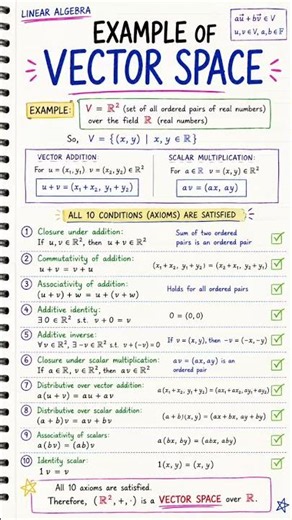 LINEAR ALGEBRA
au⃗ + bv⃗ ∈ V
u, v ∈ V, a, b ∈ F
EXAMPLE OF
VECTOR SPACE
EXAMPLE:
V = ℝ² (set of all ordered pairs of real numbers)
over the field ℝ (real numbers)
So, V = {(x, y) | x, y ∈ ℝ}
VECTOR ADDITION:
For u = (x₁, y₁) v = (x₂, y₂) ∈ ℝ²
u + v = (x₁ + x₂, y₁ + y₂)
SCALAR MULTIPLICATION:
For a ∈ ℝ v = (x, y) ∈ ℝ²
av = (ax, ay)
ALL 10 CONDITIONS (AXIOMS) ARE SATISFIED
1 Closure under addition:
If u, v ∈ ℝ², then u + v ∈ ℝ²
Sum of two ordered
pairs is an ordered pair
2 Commutativity of addition:
u + v = v + u
(x₁ + x₂, y₁ + y₂) = (x₂ + x₁, y₂ + y₁)
3 Associativity of addition:
(u + v) + w = u + (v + w)
Holds for all ordered pairs
4 Additive identity:
∃ 0 ∈ ℝ² s.t. v + 0 = v
0 = (0, 0)
5 Additive inverse:
∀ v ∈ ℝ², ∃ -v ∈ ℝ² s.t. v + (-v) = 0
If v = (x, y), then -v = (-x, -y)
6 Closure under scalar multiplication:
If a ∈ ℝ, v ∈ ℝ², then av ∈ ℝ²
av = (ax, ay) is an
ordered pair
7 Distributive over vector addition:
a(u + v) = au + av
a(x₁ + x₂, y₁ + y₂) = (ax₁ + ax₂, ay₁ + ay₂)
8 Distributive over scalar addition:
(a + b)v = av + bv
(a + b)(x, y) = (ax + bx, ay + by)
9 Associativity of scalars:
a(bv) = (ab)v
a(bx, by) = (abx, aby)
10 Identity scalar:
1v = v
1(x, y) = (x, y)
All 10 axioms are satisfied.
Therefore, (ℝ², +, ·) is a VECTOR SPACE over ℝ.